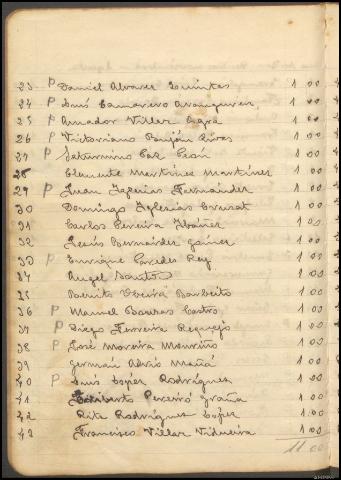 23 P Daniel Alvarez Quintas 1 00
24 P Luis Camarero 1 00
25 P Amador Villar 1 00
26 P Victoriano Rivas 1 00
27 P Saturnino Paz León 1 00
28 Clemente Martínez Martínez 1 00
29 P Juan Fernández 1 00
30 Domingo Iglesias 1 00
31 Carlos Pereira Ibáñez 1 00
32 Jesús Bernardez 1 00
33 P Enrique Paredes Rey 1 00
34 Angel Santos 1 00
35 Benito Barbeito 1 00
36 P Manuel Castro 1 00
37 P Diego Ferreira Requejo 1 00
38 P José Moreira Mouriño 1 00
39 Germán Mañá 1 00
40 P Luis López Rodríguez 1 00
41 Pereiró Graña 1 00
42 Rita Rodríguez López 1 00
43 Francisco Villar Vidueira 1 00
11 00